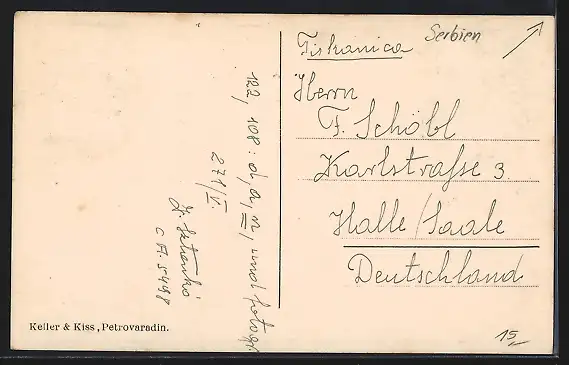 Serbien
Tiskanica
Herrn
F. Schöbl
Karlstraße 3.
Halle/Saale
Deutschland
122, 108: d, a, n, und fotogr.
271/V.
C A. 5498
Keller & Kiss, Petrovaradin.
15